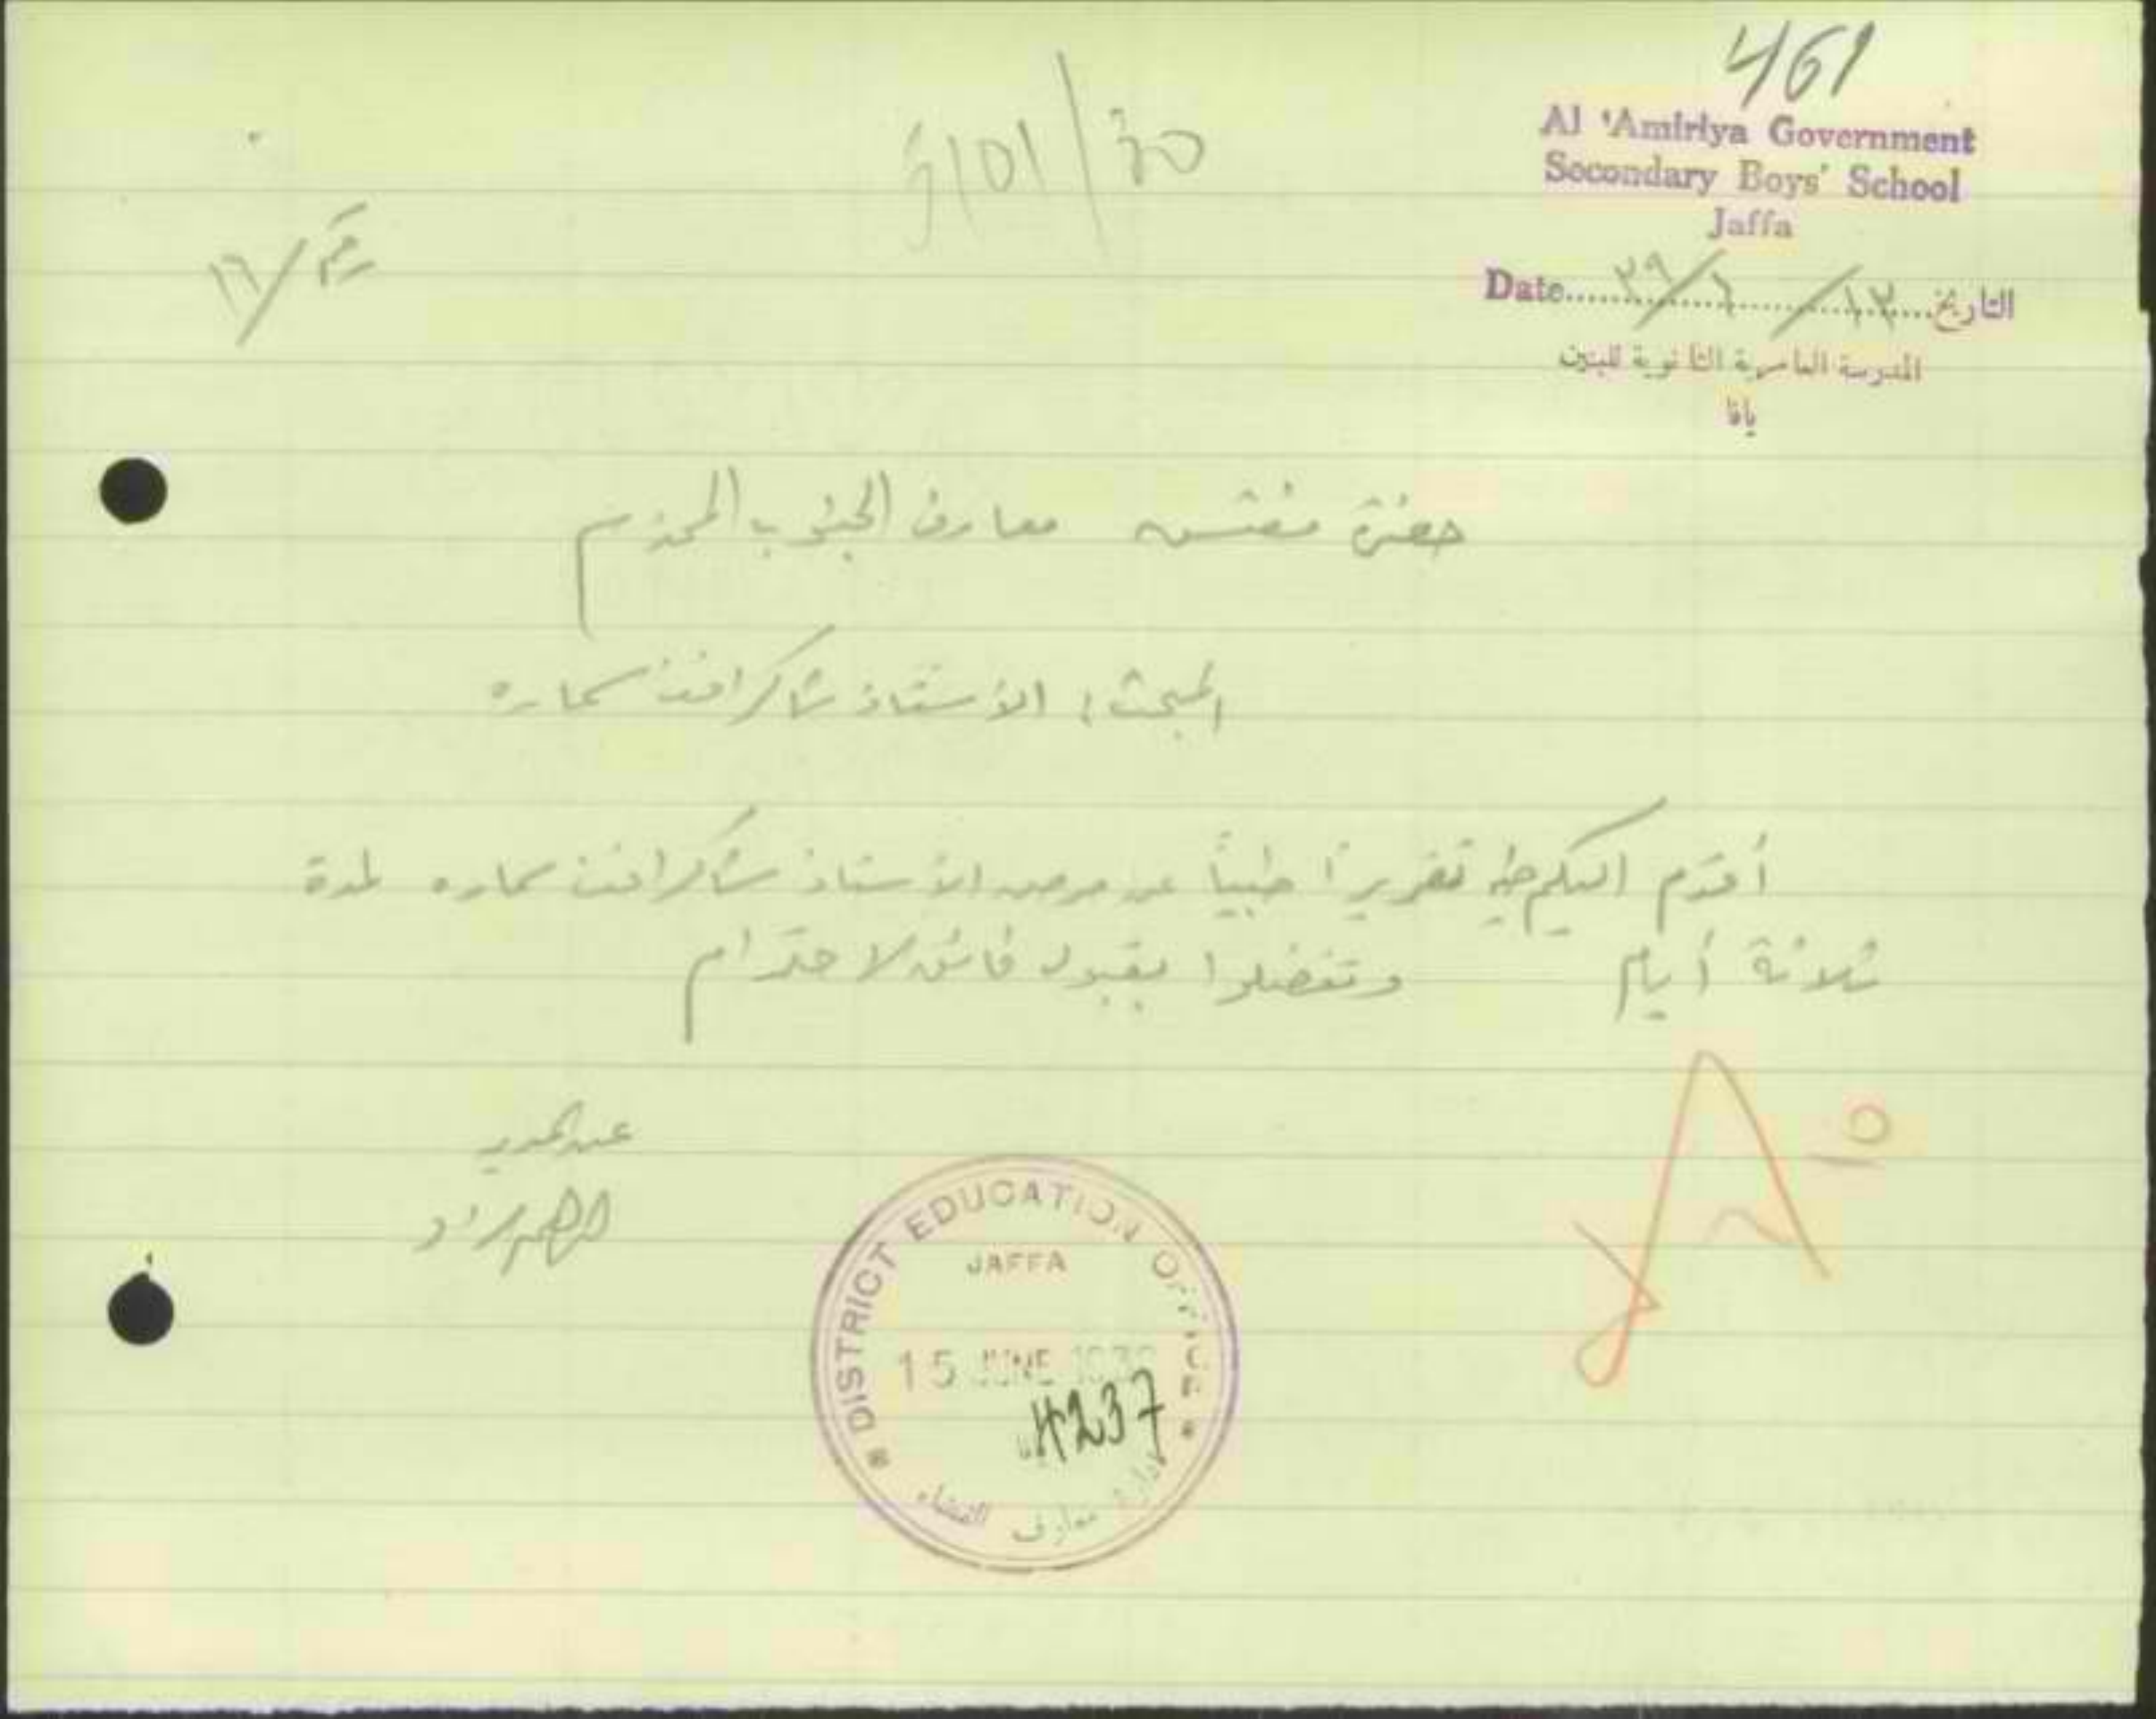 461
Al 'Amiriya Government
Secondary Boys' School
Jaffa
Date ١٣/٦/٣٩ التاريخ
المدرسة العامرية الثانوية للبنين
يافا
حضرة مفتش معارف الجنوب المحترم
المبحث: الأستاذ شاكر افندي سماره
أقدم اليكم طيه تقريراً طبياً عن مرض الأستاذ شاكر افندي سماره لمدة
ثلاثة أيام وتفضلوا بقبول فائق الاحترام
عن المدير
DISTRICT EDUCATION OFFICE
JAFFA
15 JUNE 1939
4237
ادارة معارف القضاء